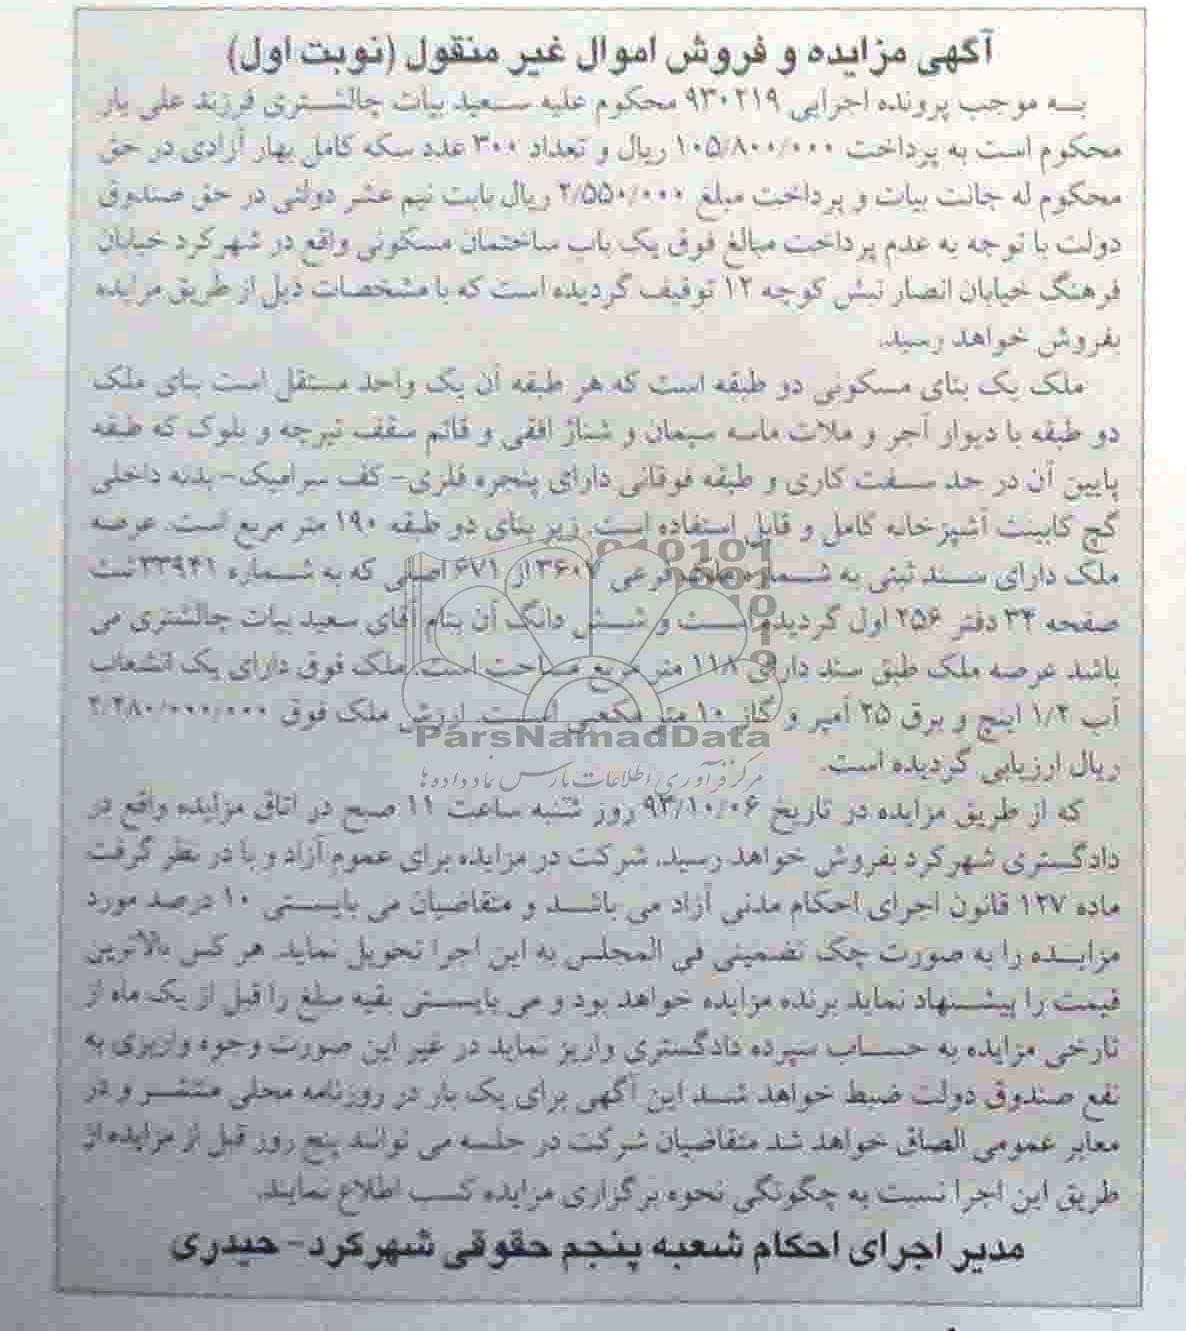 آگهی مزایده و فروش اموال غیر منقول (نوبت اول)
به موجب پرونده اجرایی ۹۳۰۲۱۹ محکوم علیه سعید بیات چالشتری فرزند علی یار
محکوم است به پرداخت ۱۰۵/۸۰۰/۰۰۰ ریال و تعداد ۳۰۰ عدد سکه کامل بهار آزادی در حق
محکوم له جانت بیات و پرداخت مبلغ ۲/۵۵۰/۰۰۰ ریال بابت نیم عشر دولتی در حق صندوق
دولت با توجه به عدم پرداخت مبالغ فوق یک باب ساختمان مسکونی واقع در شهرکرد خیابان
فرهنگ خیابان انصار نبش کوچه ۱۲ توقیف گردیده است که با مشخصات ذیل از طریق مزایده
بفروش خواهد رسید.
ملک یک بنای مسکونی دو طبقه است که هر طبقه آن یک واحد مستقل است بنای ملک
دو طبقه با دیوار آجر و ملات ماسه سیمان و شناژ افقی و قائم سقف تیرچه و بلوک که طبقه
پایین آن در حد سفت کاری و طبقه فوقانی دارای پنجره فلزی- کف سرامیک- بدنه داخلی
گچ کابینت آشپزخانه کامل و قابل استفاده است. زیر بنای دو طبقه ۱۹۰ متر مربع است. عرصه
ملک دارای سند ثبتی به شماره پلاک فرعی ۳۶۰۷ از ۶۷۱ اصلی که به شماره ۳۳۹۴۱ ثبت
صفحه ۳۴ دفتر ۲۵۶ اول گردیده است و شش دانگ آن بنام آقای سعید بیات چالشتری می
باشد عرصه ملک طبق سند دارای ۱۱۸ متر مربع مساحت است. ملک فوق دارای یک انشعاب
آب ۱/۲ اینچ و برق ۲۵ آمپر و گاز ۱۰ متر مکعبی است. ارزش ملک فوق ۲/۲۸۰/۰۰۰/۰۰۰
ریال ارزیابی گردیده است.
که از طریق مزایده در تاریخ ۹۳/۱۰/۰۶ روز شنبه ساعت ۱۱ صبح در اتاق مزایده واقع در
دادگستری شهرکرد بفروش خواهد رسید. شرکت در مزایده برای عموم آزاد و با در نظر گرفت
ماده ۱۲۷ قانون اجرای احکام مدنی آزاد می باشد و متقاضیان می بایستی ۱۰ درصد مورد
مزایده را به صورت چک تضمینی فی المجلس به این اجرا تحویل نماید. هر کس بالاترین
قیمت را پیشنهاد نماید برنده مزایده خواهد بود و می بایستی بقیه مبلغ را قبل از یک ماه از
تارخی مزایده به حساب سپرده دادگستری واریز نماید در غیر این صورت وجوه واریزی به
نفع صندوق دولت ضبط خواهد شد این آگهی برای یک بار در روزنامه محلی منتشر و در
معابر عمومی الصاق خواهد شد متقاضیان شرکت در جلسه می توانند پنج روز قبل از مزایده از
طریق این اجرا نسبت به چگونگی نحوه برگزاری مزایده کسب اطلاع نمایند.
مدیر اجرای احکام شعبه پنجم حقوقی شهرکرد- حیدری
ParsNamadData
مرکز فرآوری اطلاعات پارس نماد داده ها